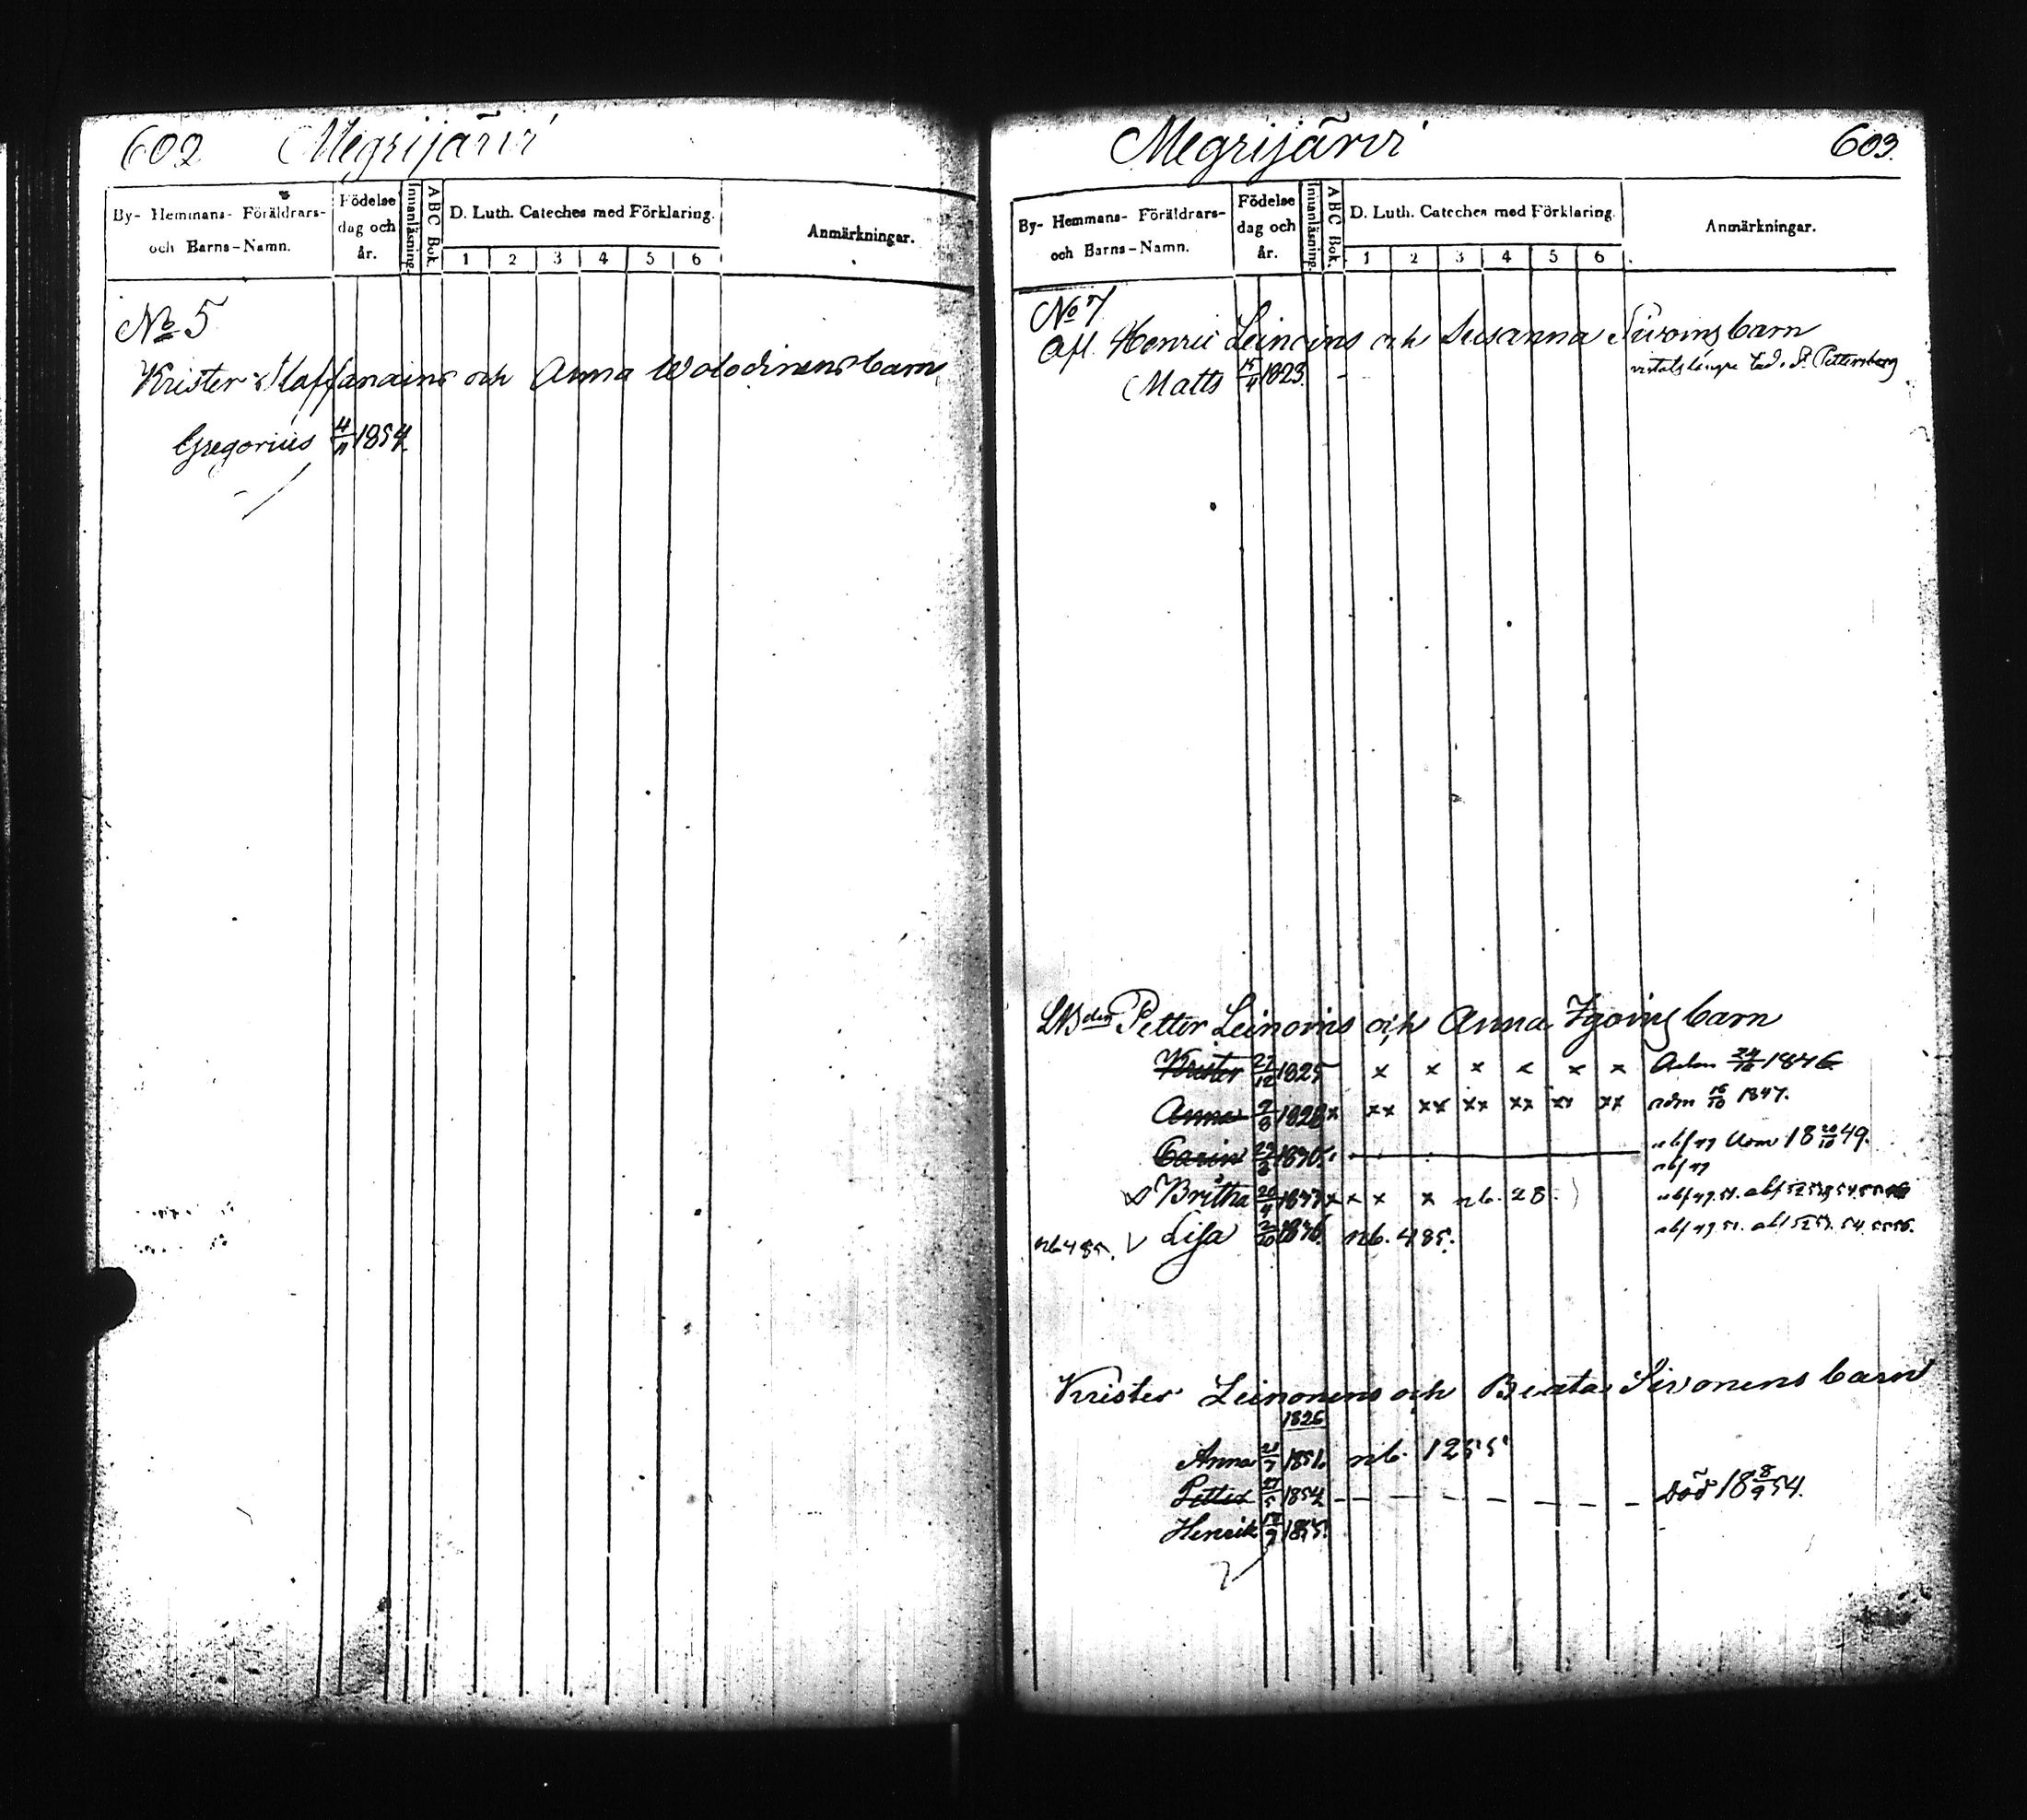 602 Megrijärvi
By- Hemmans- Föräldrars-
och Barns-Namn.
Födelse
dag och
år.
Innanläsning.
ABC Bok.
D. Luth. Cateches med Förklaring.
1 2 3 4 5 6
Anmärkningar.
No 5
Krister Staffanains och Anna Wolodinens barn
Gregorius 4/11 1854.
Megrijärvi 603.
By- Hemmans- Föräldrars-
och Barns-Namn.
Födelse
dag och
år.
Innanläsning.
ABC Bok.
D. Luth. Cateches med Förklaring.
1 2 3 4 5 6
Anmärkningar.
No 7
Afl. Henric Leinoins och Susanna Sivoins barn
Matts 15/4 1823. St. Pettersburg
Petter Leinoins och Anna Igoins barn
Krister 27/12 1825 x x x x x x 24/12 1846
Anna 9/8 1828 x xx xx xx xx xx xx 15/10 1847.
Carin 18 20/10 49.
Britha x x x x nb. 28.
nb 485. Lisa nb. 485.
Krister Leinonens och Beata Sivonens barn
1826
Anna 1851. nb. 1255
Petter 1854 död 18 8/9 54.
Henrik 1855.